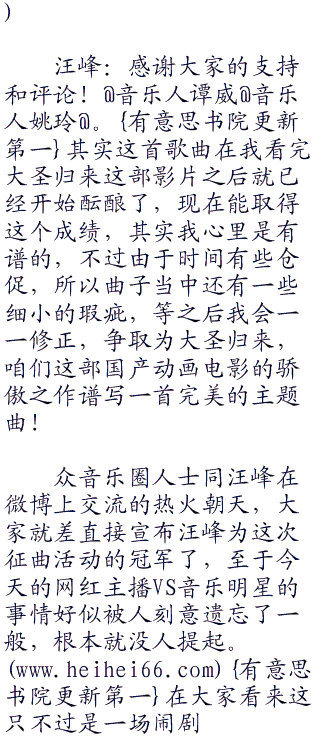 )
汪峰：感谢大家的支持
和评论！@音乐人谭威@音乐
人姚玲@。{有意思书院更新
第一}其实这首歌曲在我看完
大圣归来这部影片之后就已
经开始酝酿了，现在能取得
这个成绩，其实我心里是有
谱的，不过由于时间有些仓
促，所以曲子当中还有一些
细小的瑕疵，等之后我会一
一修正，争取为大圣归来，
咱们这部国产动画电影的骄
傲之作谱写一首完美的主题
曲！
众音乐圈人士同汪峰在
微博上交流的热火朝天，大
家就差直接宣布汪峰为这次
征曲活动的冠军了，至于今
天的网红主播VS音乐明星的
事情好似被人刻意遗忘了一
般，根本就没人提起。
(www.heihei66.com){有意思
书院更新第一}在大家看来这
只不过是一场闹剧